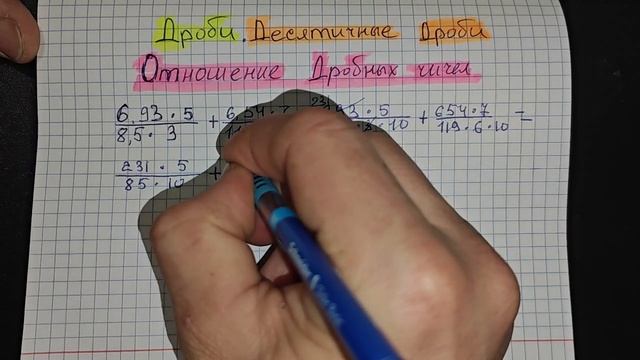 Дроби. Десятичные Дроби
Отношение Дробных чисел
6,93 · 5 / 8,5 · 3 + 6,54 · 7 93 · 5 · 10 + 654 · 7 / 119 · 6 · 10 =
231 · 5 / 85 · 10 +